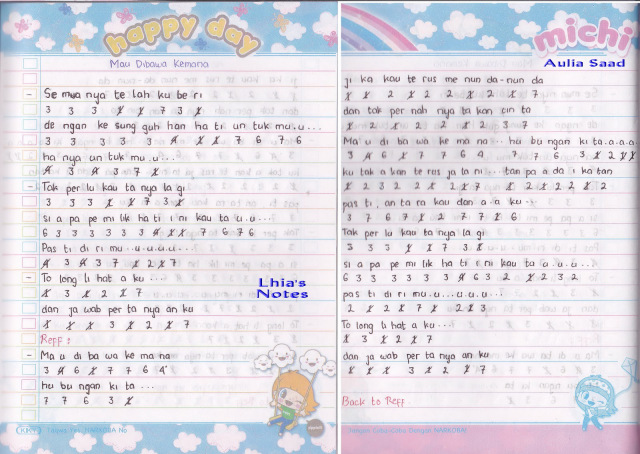 happy day
Mau Dibawa Kemana
- Se mua nya te lah ku be ri
3 3 3 1̸ 1̸ 7 3 1̸
de ngan ke sung guh han ha ti un tuk mu.u...
3 3 3 3 3 4̸ 1̸ 1̸ 7 6 7 6
ha nya un tuk mu.u...
4̸ 3 4̸ 7 1̸
- Tak per lu kau ta nya la gi
3 3 3 1̸ 1̸ 7 3 1̸
si a pa pe mi lik ha ti i ni kau ta u.u...
6 3 3 3 3 3 3 3 4̸ 1̸ 1̸ 7 6 7 6
Pas ti di ri mu..u.u.u.u...
- To long li hat a ku ...
1̸ 3 1̸ 2 1̸ 7
dan ja wab per ta nya an ku
1̸ 1̸ 1̸ 3 1̸ 2 1̸ 7
Reff :
- Ma u di ba wa ke ma na
3 4̸ 6 1̸ 7 7 6 4
hu bu ngan ki ta ...
7 7 6 3 1̸
Lhia's
Notes
KKY
michi
Aulia Saad
ji ka kau te rus me nun da-nun da
1̸ 1̸ 2 1̸ 2 2 1̸ 2 1̸ 7
dan tak per nah nya ta kan cin ta
Ma u di ba wa ke ma na... hu bu ngan ki ta.a.a.a
ku tak a kan te rus ja la ni.... tan pa a da i ka tan
pas ti, an ta ra kau dan a.a ku...
3 7 6 7 1̸ 2 7 7 1̸ 6
Tak per lu kau ta nya la gi
3 3 3 1̸ 1̸ 7 3 1̸
si a pa pe mi lik ha ti i ni kau ta u.u..u..
6 3 3 3 3 3 3 4̸ 6 3 2 1̸ 2 3 2
pas ti di ri mu.u...u.u.u...
2 1̸ 2 1̸ 7 1̸ 2 1̸ 3
To long li hat a ku...
1̸ 3 1̸ 2 1̸ 7
dan ja wab per ta nya an ku
1̸ 1̸ 1̸ 3 1̸ 2 1̸ 7
Back to Reff